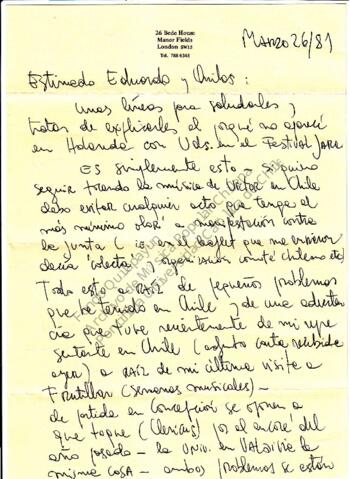 26 Bede House
Manor Fields
London SW15
Tel. 788 6343
MARZO 26/81
Estimado Eduardo y Quilas :
Unas líneas para saludarles y
tratar de explicarles el porqué no aparecí
en Holanda con Uds. en el FESTIVAL JARA
ES simplemente esto - si quiero
seguir tocando la música de Victor en Chile
debo evitar cualquier acto que tenga el
más mínimo olor a manifestación contra
la Junta ( en el leaflet que me
decía "colecta comité chileno etc)
Todo esto a RAIZ de pequeños problemas
que he tenido en Chile y de una adverten
cia que tuve recientemente de mi repre
sentante en Chile (adjunto carta recibida
ayer) a RAIZ de mi última visita a
Frutillar (semanas musicales) -
de partida en Concepción se oponen a
que toque por el encore del
año pasado - la UNIV. en VALDIVIA la
misma cosa - ambos problemas se están